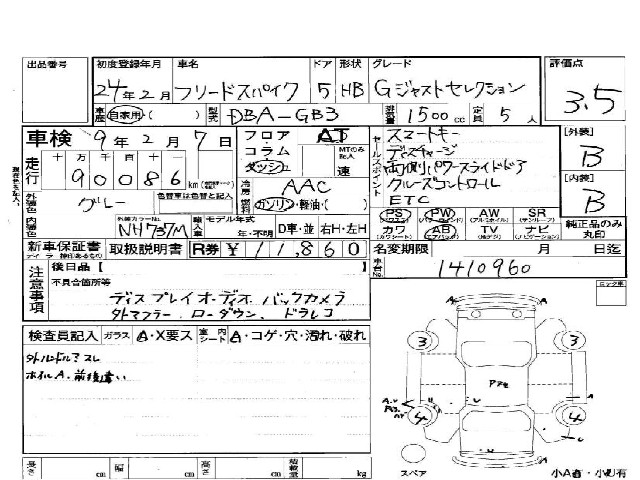 出品番号 初度登録年月 車名 ドア 形状 グレード 評価点
24年2月 フリードスパイク 5 HB Gジャストセレクション 3.5
車歴 自家用・( ) 型式 DBA-GB3 排気量 1500cc 定員 5人
車検 9年2月7日 フロア・コラム・ダッシュ AT MTのみ記入 速
走行 十 万 千 百 十 一
90086 km
冷房 AAC
燃料 ガソリン・軽油・( )
外装色 グレー 色替車は色替と記入
内装色 外装カラーNo. NH737M 輸入車 モデル年式 年・不明 D車・並 右H・左H
新車保証書 取扱説明書 R券 ¥11,860
セールスポイント
スマートキー
ディスチャージ
両側パワースライドドア
クルーズコントロール
ETC
PS PW AW SR
カワ AB TV ナビ
純正品のみ丸印
[外装] B
[内装] B
名変期限 月 日迄
車台No. 1410960
注意事項
後日品 [ ]
不具合箇所等
ディスプレイオーディオ バックカメラ
社外マフラー ローダウン ドラレコ
検査員記入 ガラス A・X要ス 室内シート A・コゲ・穴・汚れ・破れ
ホイルA、前後違い
3 3
4 4
A
スペア
小A有・小U有
長さ cm 幅 cm 高さ cm 積載量 kg